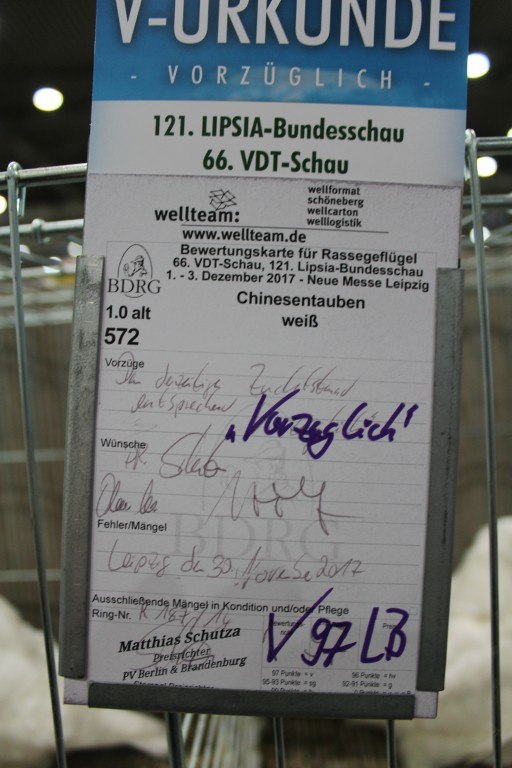 V-URKUNDE
- VORZÜGLICH -
121. LIPSIA-Bundesschau
66. VDT-Schau
wellteam:
wellformat
schöneberg
wellcarton
welllogistik
www.wellteam.de
BDRG
Bewertungskarte für Rassegeflügel
66. VDT-Schau, 121. Lipsia-Bundesschau
1. - 3. Dezember 2017 - Neue Messe Leipzig
Chinesentauben
weiß
1.0 alt
572
Vorzüge
Dem derzeitige Zuchtstand
entsprechend
„Vorzüglich"
Wünsche
BDRG
Fehler/Mängel
Leipzig den 30. November 2017
Ausschließende Mängel in Kondition und/oder Pflege
Ring-Nr.
Matthias Schutza
Preisrichter
PV Berlin & Brandenburg
V 97 LB
97 Punkte = v
96 Punkte = hv
95-93 Punkte = sg
92-91 Punkte = g